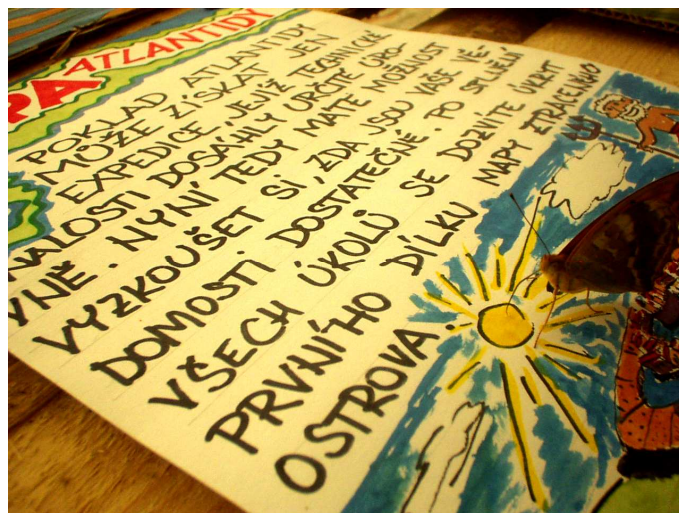 PA ATLANTIDY
POKLAD ATLANTIDY
MŮŽE ZÍSKAT JEN
EXPEDICE, JEJÍŽ TECHNICKÉ
NALOSTI DOSÁHLY URČITÉ ÚRO-
VNĚ. NYNÍ TEDY MÁTE MOŽNOST
VYZKOUŠET SI, ZDA JSOU VAŠE VĚ-
DOMOSTI DOSTATEČNÉ. PO SPLNĚNÍ
VŠECH ÚKOLŮ SE DOZVÍTE ÚKRYT
PRVNÍHO DÍLKU MAPY ZTRACENÉHO
OSTROVA